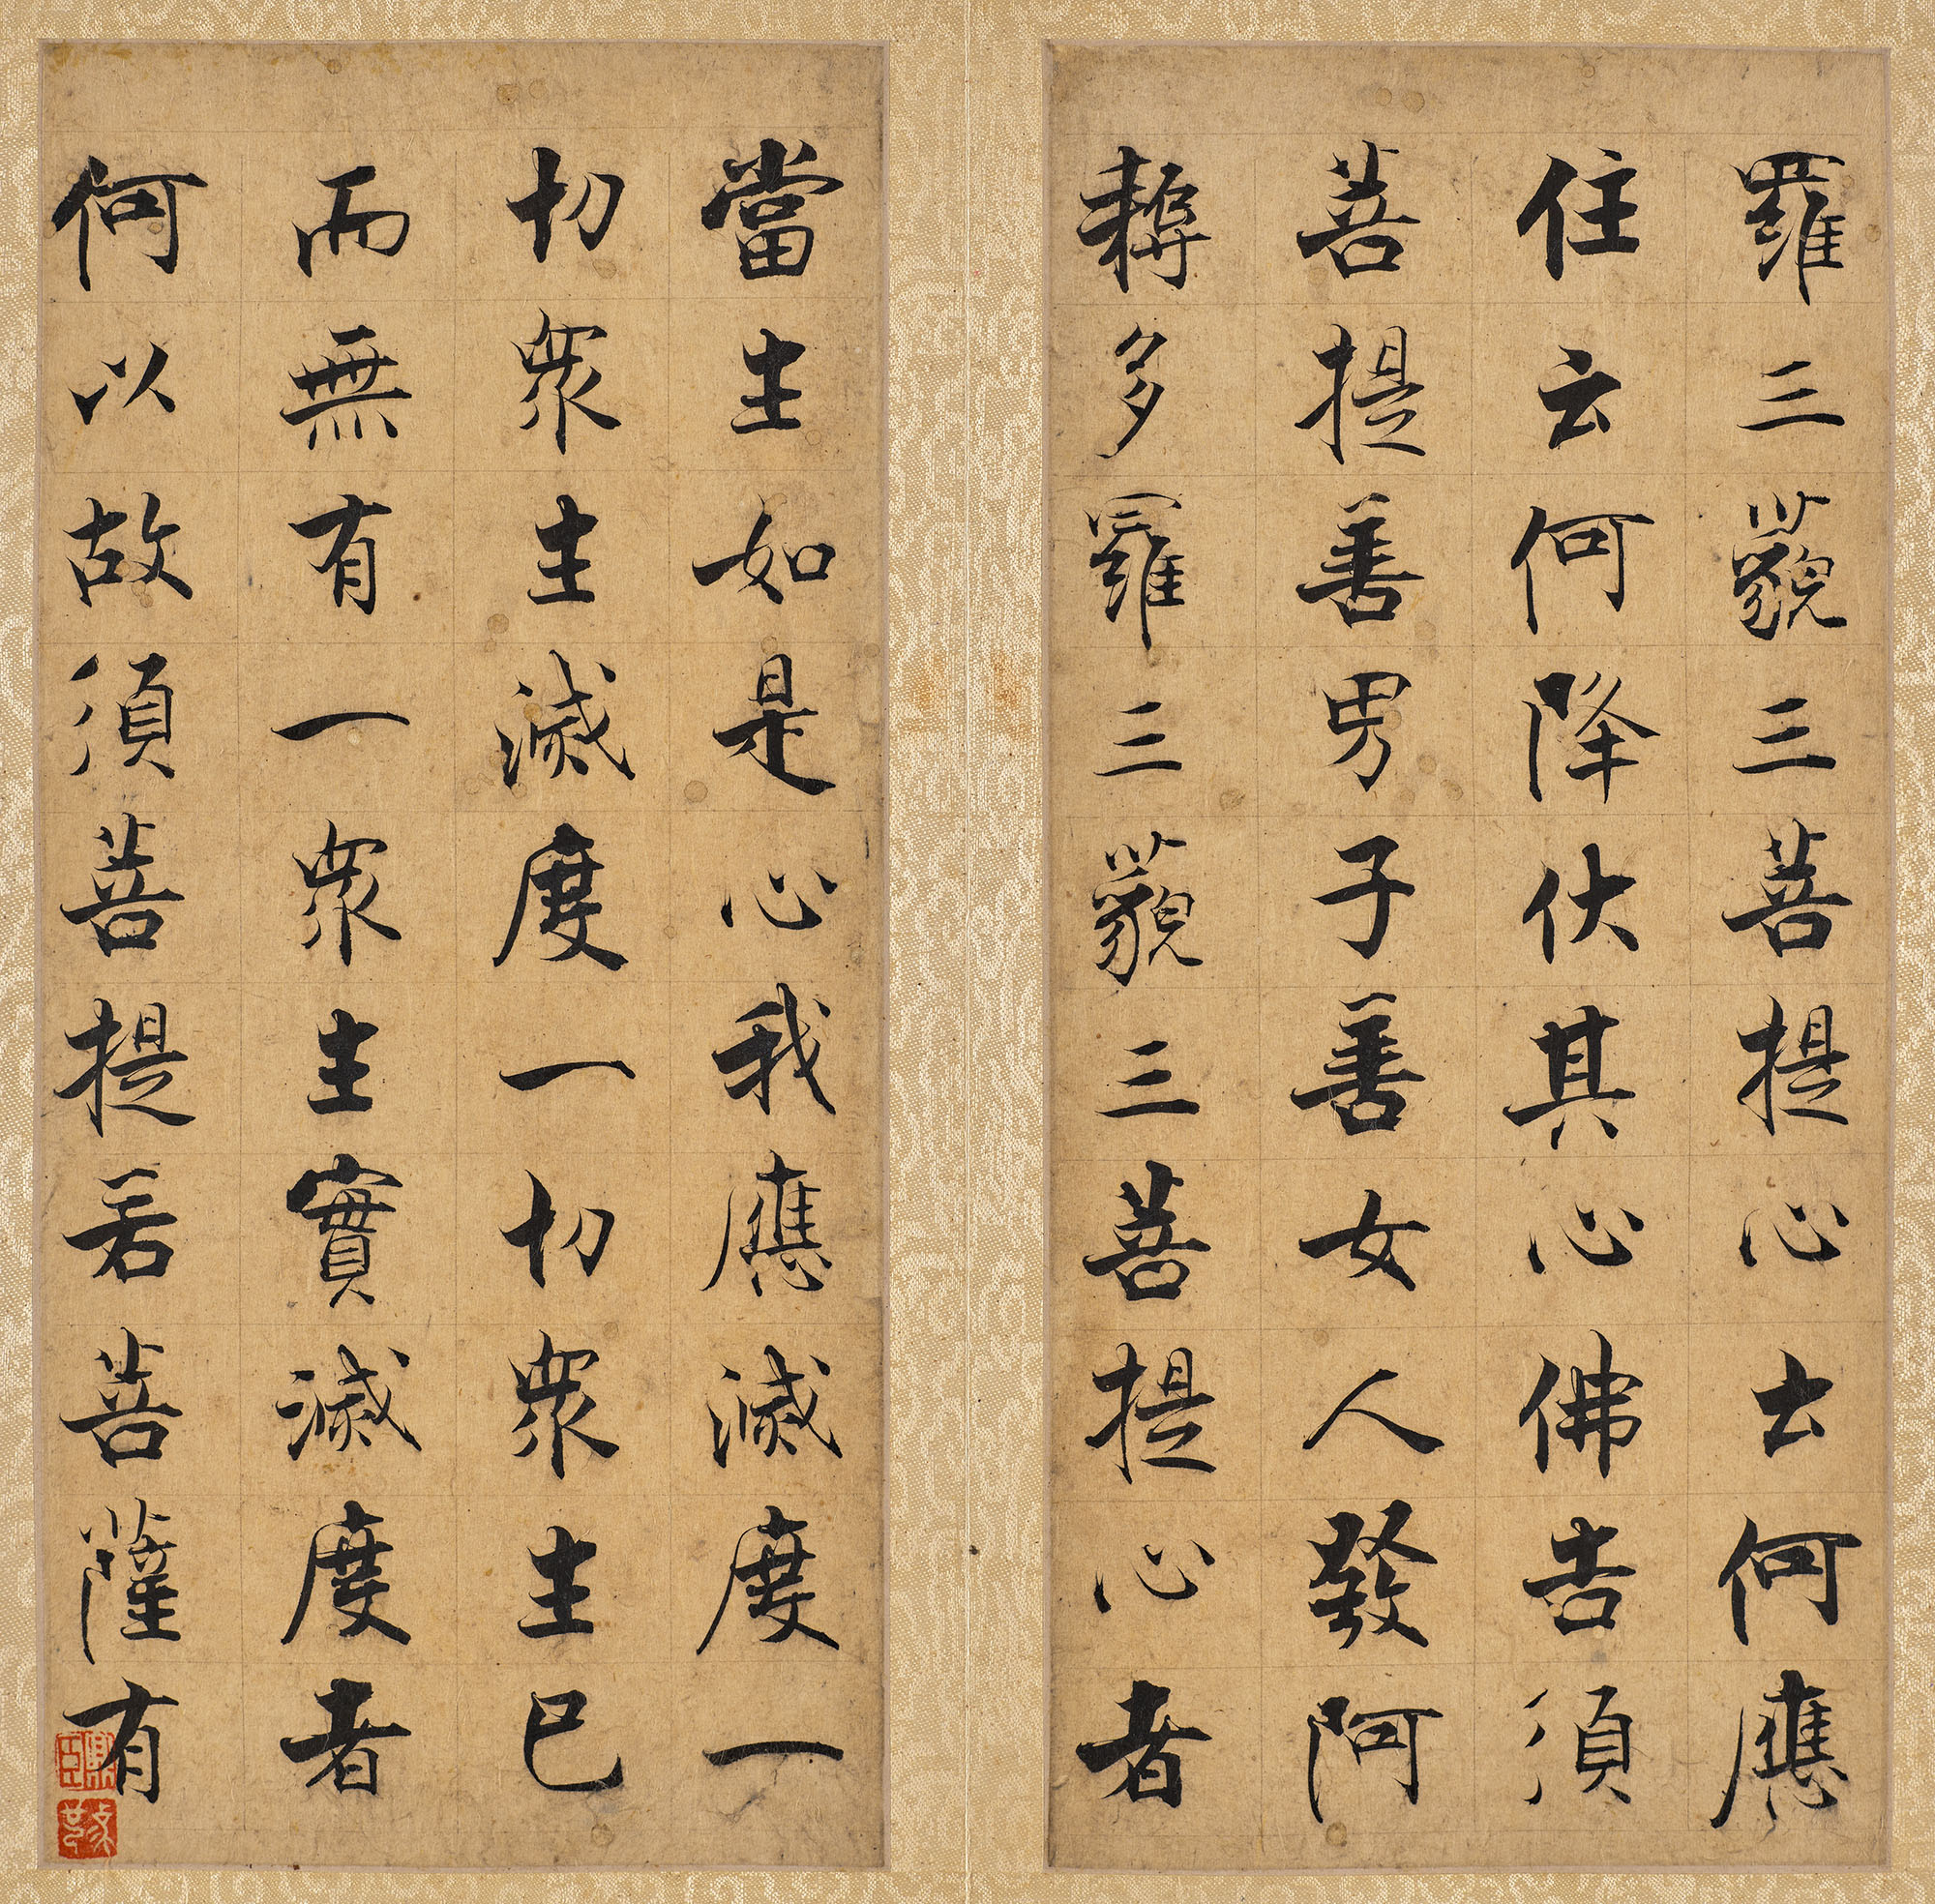 羅三藐三菩提心云何應
住云何降伏其心佛告須
菩提善男子善女人發阿
耨多羅三藐三菩提心者
當生如是心我應滅度一
切衆生滅度一切衆生已
而無有一衆生實滅度者
何以故須菩提若菩薩有